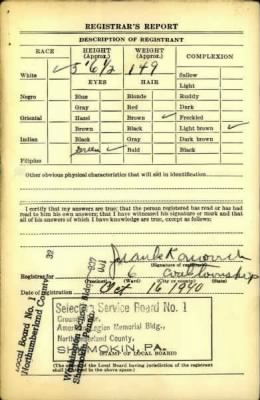 REGISTRAR'S REPORT
DESCRIPTION OF REGISTRANT
RACE HEIGHT (Approx.) WEIGHT (Approx.) COMPLEXION
White ✓ 5' 6 1/2 149 Sallow
EYES HAIR Light
Negro Blue Blonde Ruddy
Gray Red Dark
Oriental Hazel Brown ✓ Freckled
Brown Black Light brown ✓
Indian Black Gray Dark brown
Green ✓ Bald Black
Filipino
Other obvious physical characteristics that will aid in identification
I certify that my answers are true; that the person registered has read or has had read to him his own answers; that I have witnessed his signature or mark and that all of his answers of which I have knowledge are true, except as follows:
32
Registrar for 6 Coal township
Date of registration Oct. 16 1940
Local Board No. 1
Northumberland County
Shamokin, Penna.
Selective Service Board No. 1
Ground Floor,
American Legion Memorial Bldg.,
Northumberland County,
SHAMOKIN, PA.
(STAMP OF LOCAL BOARD)
(The stamp of the Local Board having jurisdiction of the registrant shall be placed in the above space.)